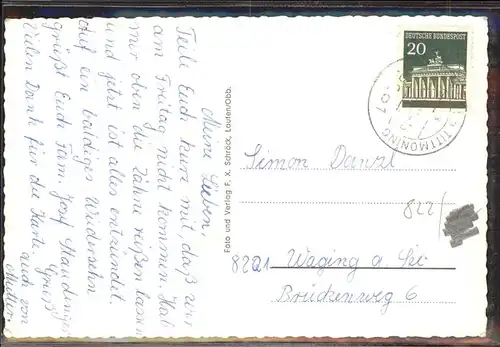 Meine Lieben,
Teile Euch kurz mit, daß wir
am Freitag nicht kommen. Hab
mir oben die Zähne reißen lassen
und jetzt ist alles entzündet.
Auf ein baldiges Wiedersehn
grüßt Euch Fam. Josef Staudinger
Vielen Dank für die Karte. Gruß
auch von
Mutter.
Foto und Verlag F. X. Schröck, Laufen/Obb.
DEUTSCHE BUNDESPOST
20
TITTMONING
Simon Danzl
822/
8221 Waging a. See
Brückenweg 6